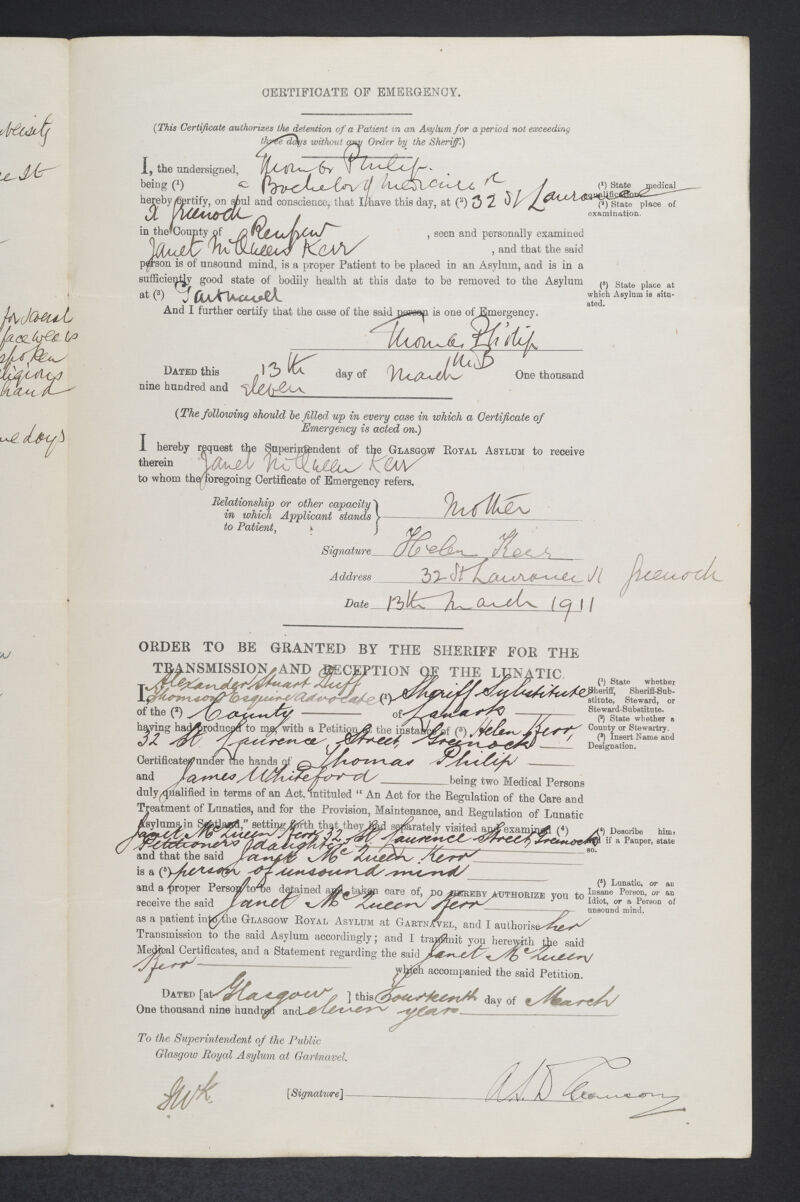 iversity
St
for several
face wears
spoken
religious
hand
days
CERTIFICATE OF EMERGENCY.
(This Certificate authorizes the detention of a Patient in an Asylum for a period not exceeding
three days without any Order by the Sheriff.)
I, the undersigned, Thomas Philip.
being (¹) a Bachelor of Medicine
hereby certify, on soul and conscience, that I have this day, at (²) 32 St Laurence
St Greenock
in the County of Renfrew , seen and personally examined
Janet McQueen Kerr , and that the said
person is of unsound mind, is a proper Patient to be placed in an Asylum, and is in a
sufficiently good state of bodily health at this date to be removed to the Asylum
at (³) Gartnavel
And I further certify that the case of the said person is one of Emergency.
Thomas Philip
M.B
DATED this 13th day of March One thousand
nine hundred and eleven
(¹) State medical
qualification.
(²) State place of
examination.
(³) State place at
which Asylum is situ-
ated.
(The following should be filled up in every case in which a Certificate of
Emergency is acted on.)
I hereby request the Superintendent of the GLASGOW ROYAL ASYLUM to receive
therein Janet McQueen Kerr
to whom the foregoing Certificate of Emergency refers.
Relationship or other capacity
in which Applicant stands
to Patient,
Mother
Signature Helen Kerr
Address 32 St Laurence St Greenock
Date 13th March 1911
ORDER TO BE GRANTED BY THE SHERIFF FOR THE
TRANSMISSION AND RECEPTION OF THE LUNATIC.
I, Alexander Stuart Duff
Thomson Esquire Advocate (¹) Sheriff Substitute
of the (²) County of Lanark
having had produced to me, with a Petition at the instance of (³) Helen Kerr,
32 St Laurence Street, Greenock
Certificates under the hands of Thomas Philip
and James Whiteford being two Medical Persons
duly qualified in terms of an Act, intituled "An Act for the Regulation of the Care and
Treatment of Lunatics, and for the Provision, Maintenance, and Regulation of Lunatic
Asylums in Scotland," setting forth that they had separately visited and examined (⁴)
Janet McQueen Kerr, 32 St Laurence Street, Greenock
Petitioners daughter
and that the said Janet McQueen Kerr
is a (⁵) person of unsound mind
and a proper Person to be detained and taken care of, DO HEREBY AUTHORIZE you to
receive the said Janet McQueen Kerr
as a patient into the GLASGOW ROYAL ASYLUM AT GARTNAVEL, and I authorise her
Transmission to the said Asylum accordingly; and I transmit you herewith the said
Medical Certificates, and a Statement regarding the said Janet McQueen
Kerr which accompanied the said Petition.
DATED [at Glasgow ] this Fourteenth day of March
One thousand nine hundred and eleven years
(¹) State whether
Sheriff, Sheriff-Sub-
stitute, Steward, or
Steward-Substitute.
(²) State whether a
County or Stewartry.
(³) Insert Name and
Designation.
(⁴) Describe him;
if a Pauper, state
so.
(⁵) Lunatic, or an
Insane Person, or an
Idiot, or a Person of
unsound mind.
To the Superintendent of the Public
Glasgow Royal Asylum at Gartnavel.
[Signature] A.S.D. Thomson